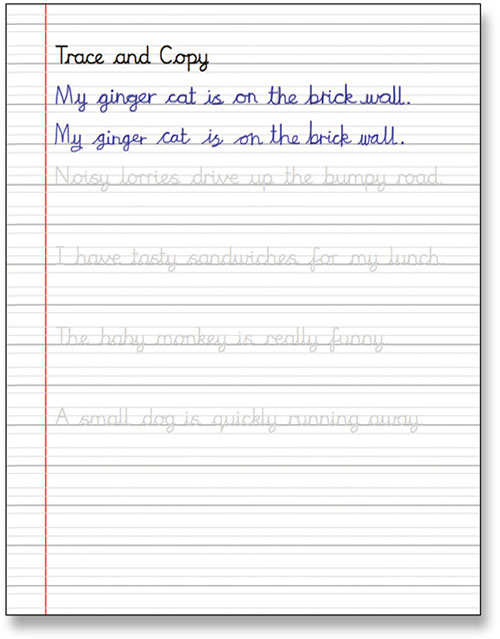 Trace and Copy
My ginger cat is on the brick wall.
My ginger cat is on the brick wall.
Noisy lorries drive up the bumpy road.
I have tasty sandwiches for my lunch.
The baby monkey is really funny.
A small dog is quickly running away.